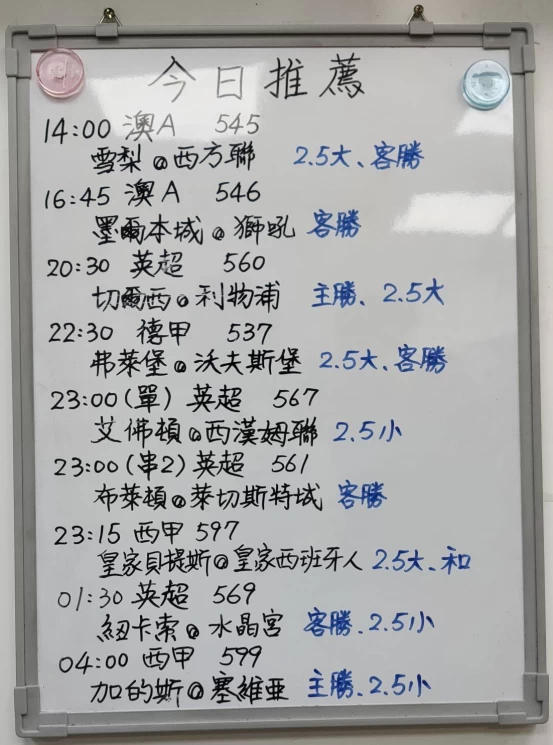 今日推薦
14:00 澳A 545
雪梨@西方聯 2.5大、客勝
16:45 澳A 546
墨爾本城@獅吼 客勝
20:30 英超 560
切爾西@利物浦 主勝、2.5大
22:30 德甲 537
弗萊堡@沃夫斯堡 2.5大、客勝
23:00(單) 英超 567
艾佛頓@西漢姆聯 2.5小
23:00(串2) 英超 561
布萊頓@萊切斯特城 客勝
23:15 西甲 597
皇家貝提斯@皇家西班牙人 2.5大、和
01:30 英超 569
紐卡索@水晶宮 客勝、2.5小
04:00 西甲 599
加的斯@塞維亞 主勝、2.5小